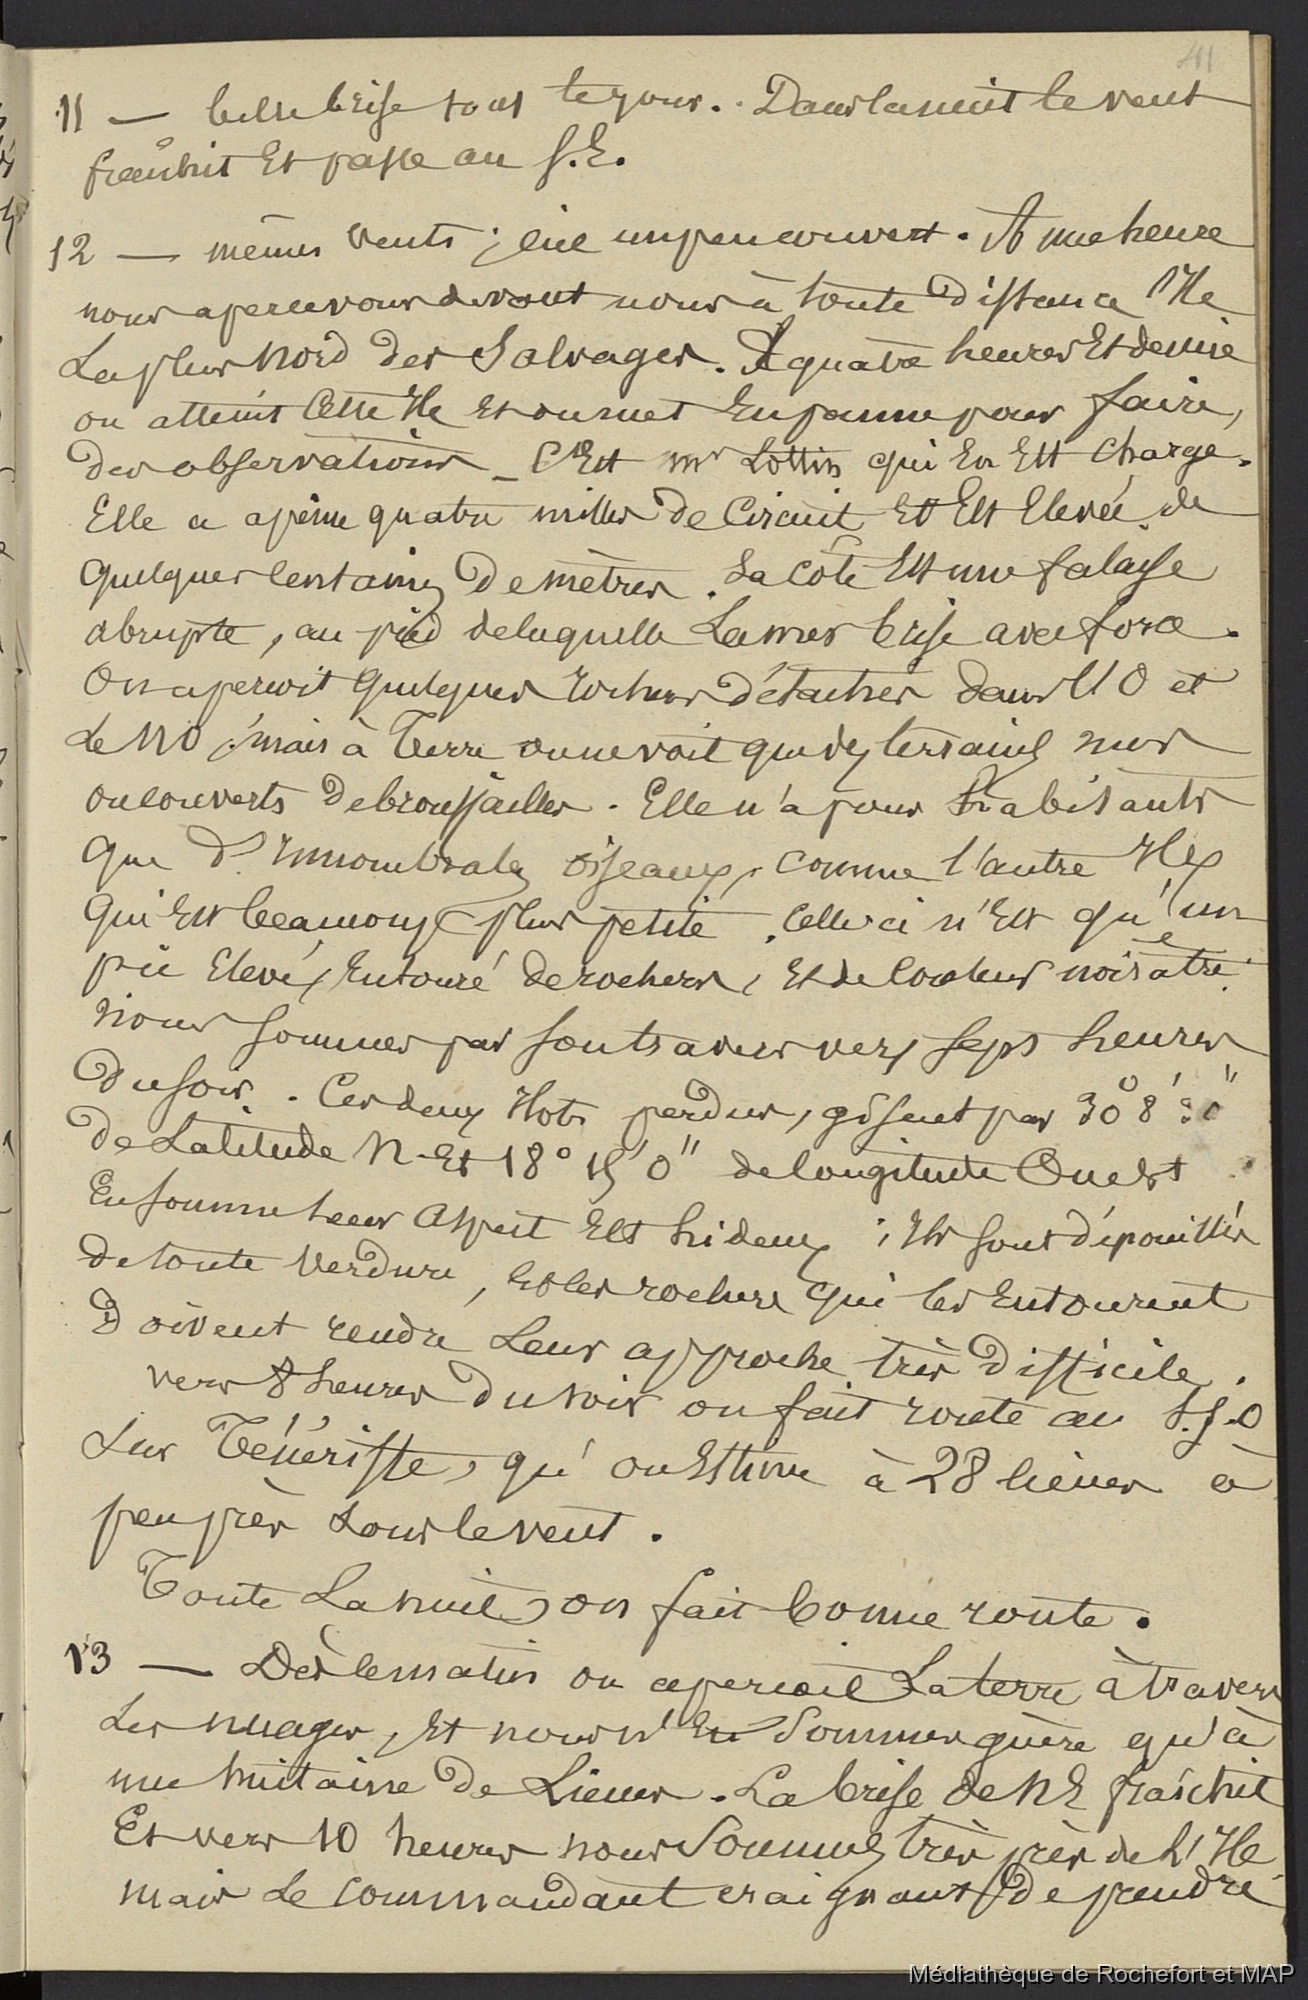 411
11 — belle brise tout le jour. Dans la nuit le vent
fraichit Et passe au S.E.
12 — mêmes vents ; ciel un peu couvert. A une heure
nous apercevons devant nous à toute distance l'Ile
La plus Nord des Salvages. A quatre heures Et demie
on atteint Cette Ile Et on met En panne pour faire,
des observations – C'Est Mr Lottin qui En Est chargé.
Elle a apeine quatre milles de Circuit Et Est Elevée de
quelques centaines De mètres. La côte Est une falaise
abrupte, au pied de laquelle La mer brise avec force.
On apercoit quelques rochers détachés dans l'O et
Le NO ; mais à Terre on ne voit que des terrains nus
ou couverts De broussailles. Elle n'a pour habitants
que d'Innombrables oiseaux, comme l'autre Ile
qui Est beaucoup plus petite. Celle ci n'Est qu'un
pic Elevé, Entouré de rochers, Et de Couleur noirâtre.
Nous sommes par son travers vers sept heures
Du soir. Ces deux Ilots perdus, gisent par 30° 8' 30"
De Latitude N. Et 18° 15' 0" de longitude Ouest
En somme leur Aspect Est hideux ; Ils sont dépouillés
De toute Verdure, Et les rochers qui les Entourent
Doivent rendre Leur approche très Difficile.
vers 8 heures Du soir on fait route au S.S.O
Sur Ténériffe, qu'on Estime à 28 lieues à
peu près sous le vent.
Toute La nuit, on fait bonne route.
13 — Dès le matin on apercoit La terre à travers
Les nuages, Et nous n'En Sommes guère qu'à
une huitaine De Lieues. La brise de NE fraîchit
Et vers 10 heures nous Sommes très près de l'Ile
mais Le Commandant craignant De prendre
Médiathèque de Rochefort et MAP